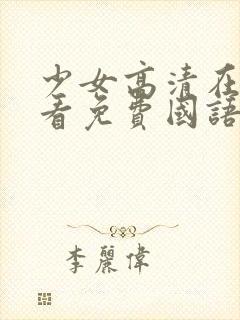 少女高清在
看免費國語
李麗偉